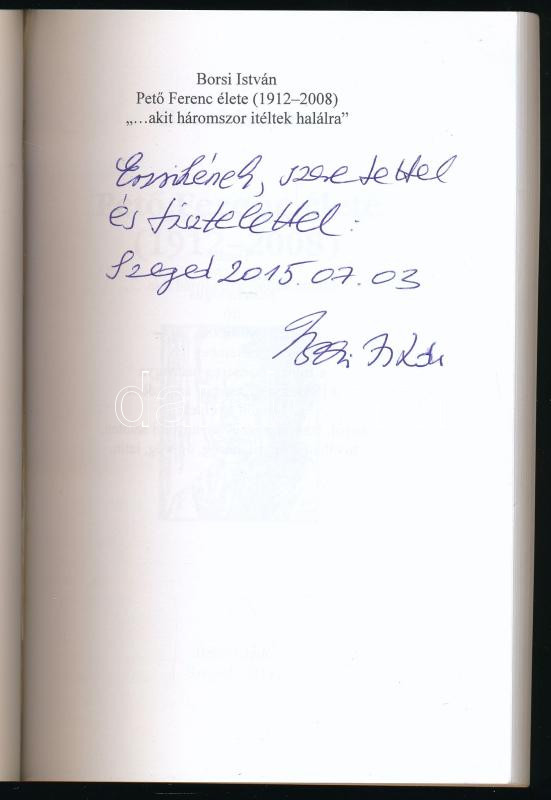 Borsi István
Pető Ferenc élete (1912–2008)
„…akit háromszor itéltek halálra”
Erzsikének, szeretettel
és tisztelettel:
Szeged 2015.07.03
Borsi István